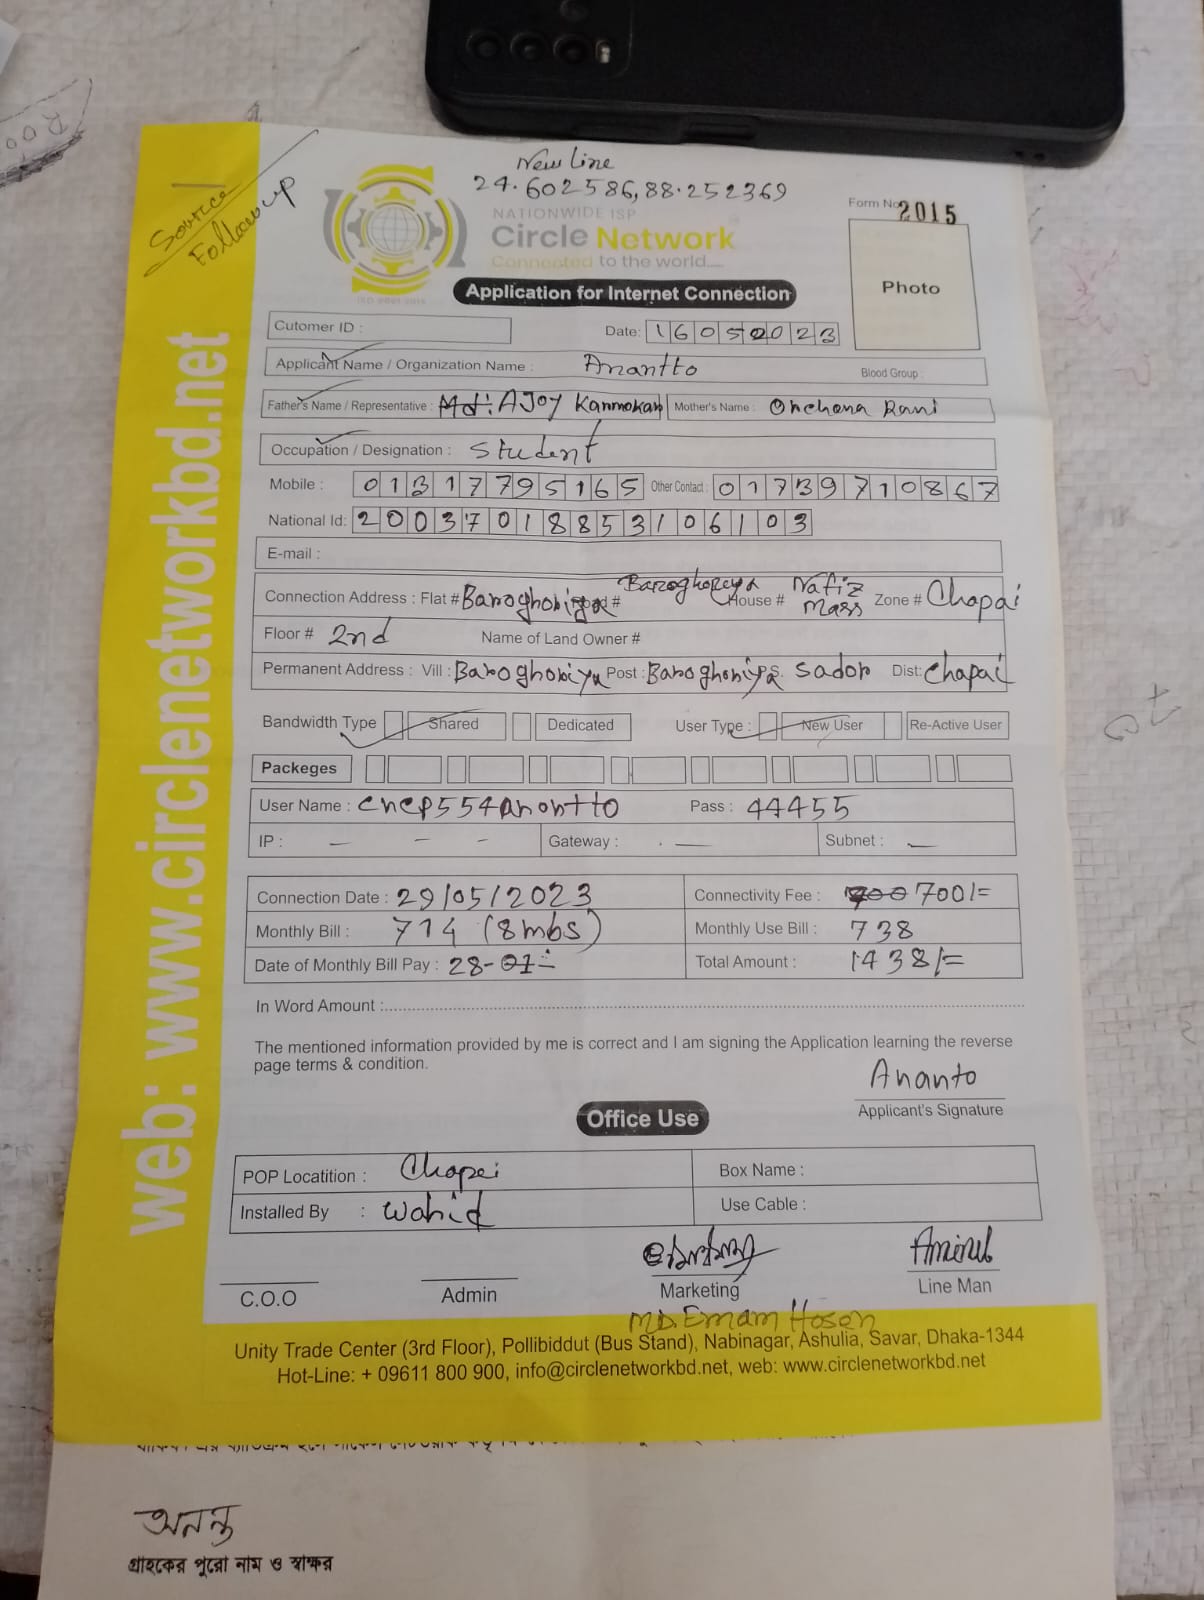 New Line
24.602586,88.252369
Source
Followup
NATIONWIDE ISP
Circle Network
Connected to the world....
ISO 9001:2015
Form No 2015
Photo
Application for Internet Connection
Cutomer ID :
Date: 16052023
Applicant Name / Organization Name : Anantto
Blood Group :
Father's Name / Representative : Md: AJoy Kanmokar Mother's Name : Onchona Rani
Occupation / Designation : Student
Mobile : 01317795165 Other Contact : 01739710867
National Id: 20037018853106103
E-mail :
Connection Address : Flat # Baroghoriya # Baroghoreya House # Nafiz Mass Zone # Chapai
Floor # 2nd Name of Land Owner #
Permanent Address : Vill : Baroghoriya Post : Baroghoriya P.S. Sador Dist: Chapai
Bandwidth Type Shared Dedicated User Type : New User Re-Active User
Packeges
User Name : cncp554anontto Pass : 44455
IP : - - - Gateway : . — Subnet : —
Connection Date : 29/05/2023 Connectivity Fee : 700/=
Monthly Bill : 714 (8mbs) Monthly Use Bill : 738
Date of Monthly Bill Pay : 28-01- Total Amount : 1438/=
In Word Amount :
The mentioned information provided by me is correct and I am signing the Application learning the reverse
page terms & condition.
Ananto
Applicant's Signature
Office Use
POP Locatition : Chapai Box Name :
Installed By : Wahid Use Cable :
Aminul
C.O.O Admin Marketing Line Man
MD. Emam Hosen
Unity Trade Center (3rd Floor), Pollibiddut (Bus Stand), Nabinagar, Ashulia, Savar, Dhaka-1344
Hot-Line: + 09611 800 900, info@circlenetworkbd.net, web: www.circlenetworkbd.net
web: www.circlenetworkbd.net
অনন্ত
গ্রাহকের পুরো নাম ও স্বাক্ষর